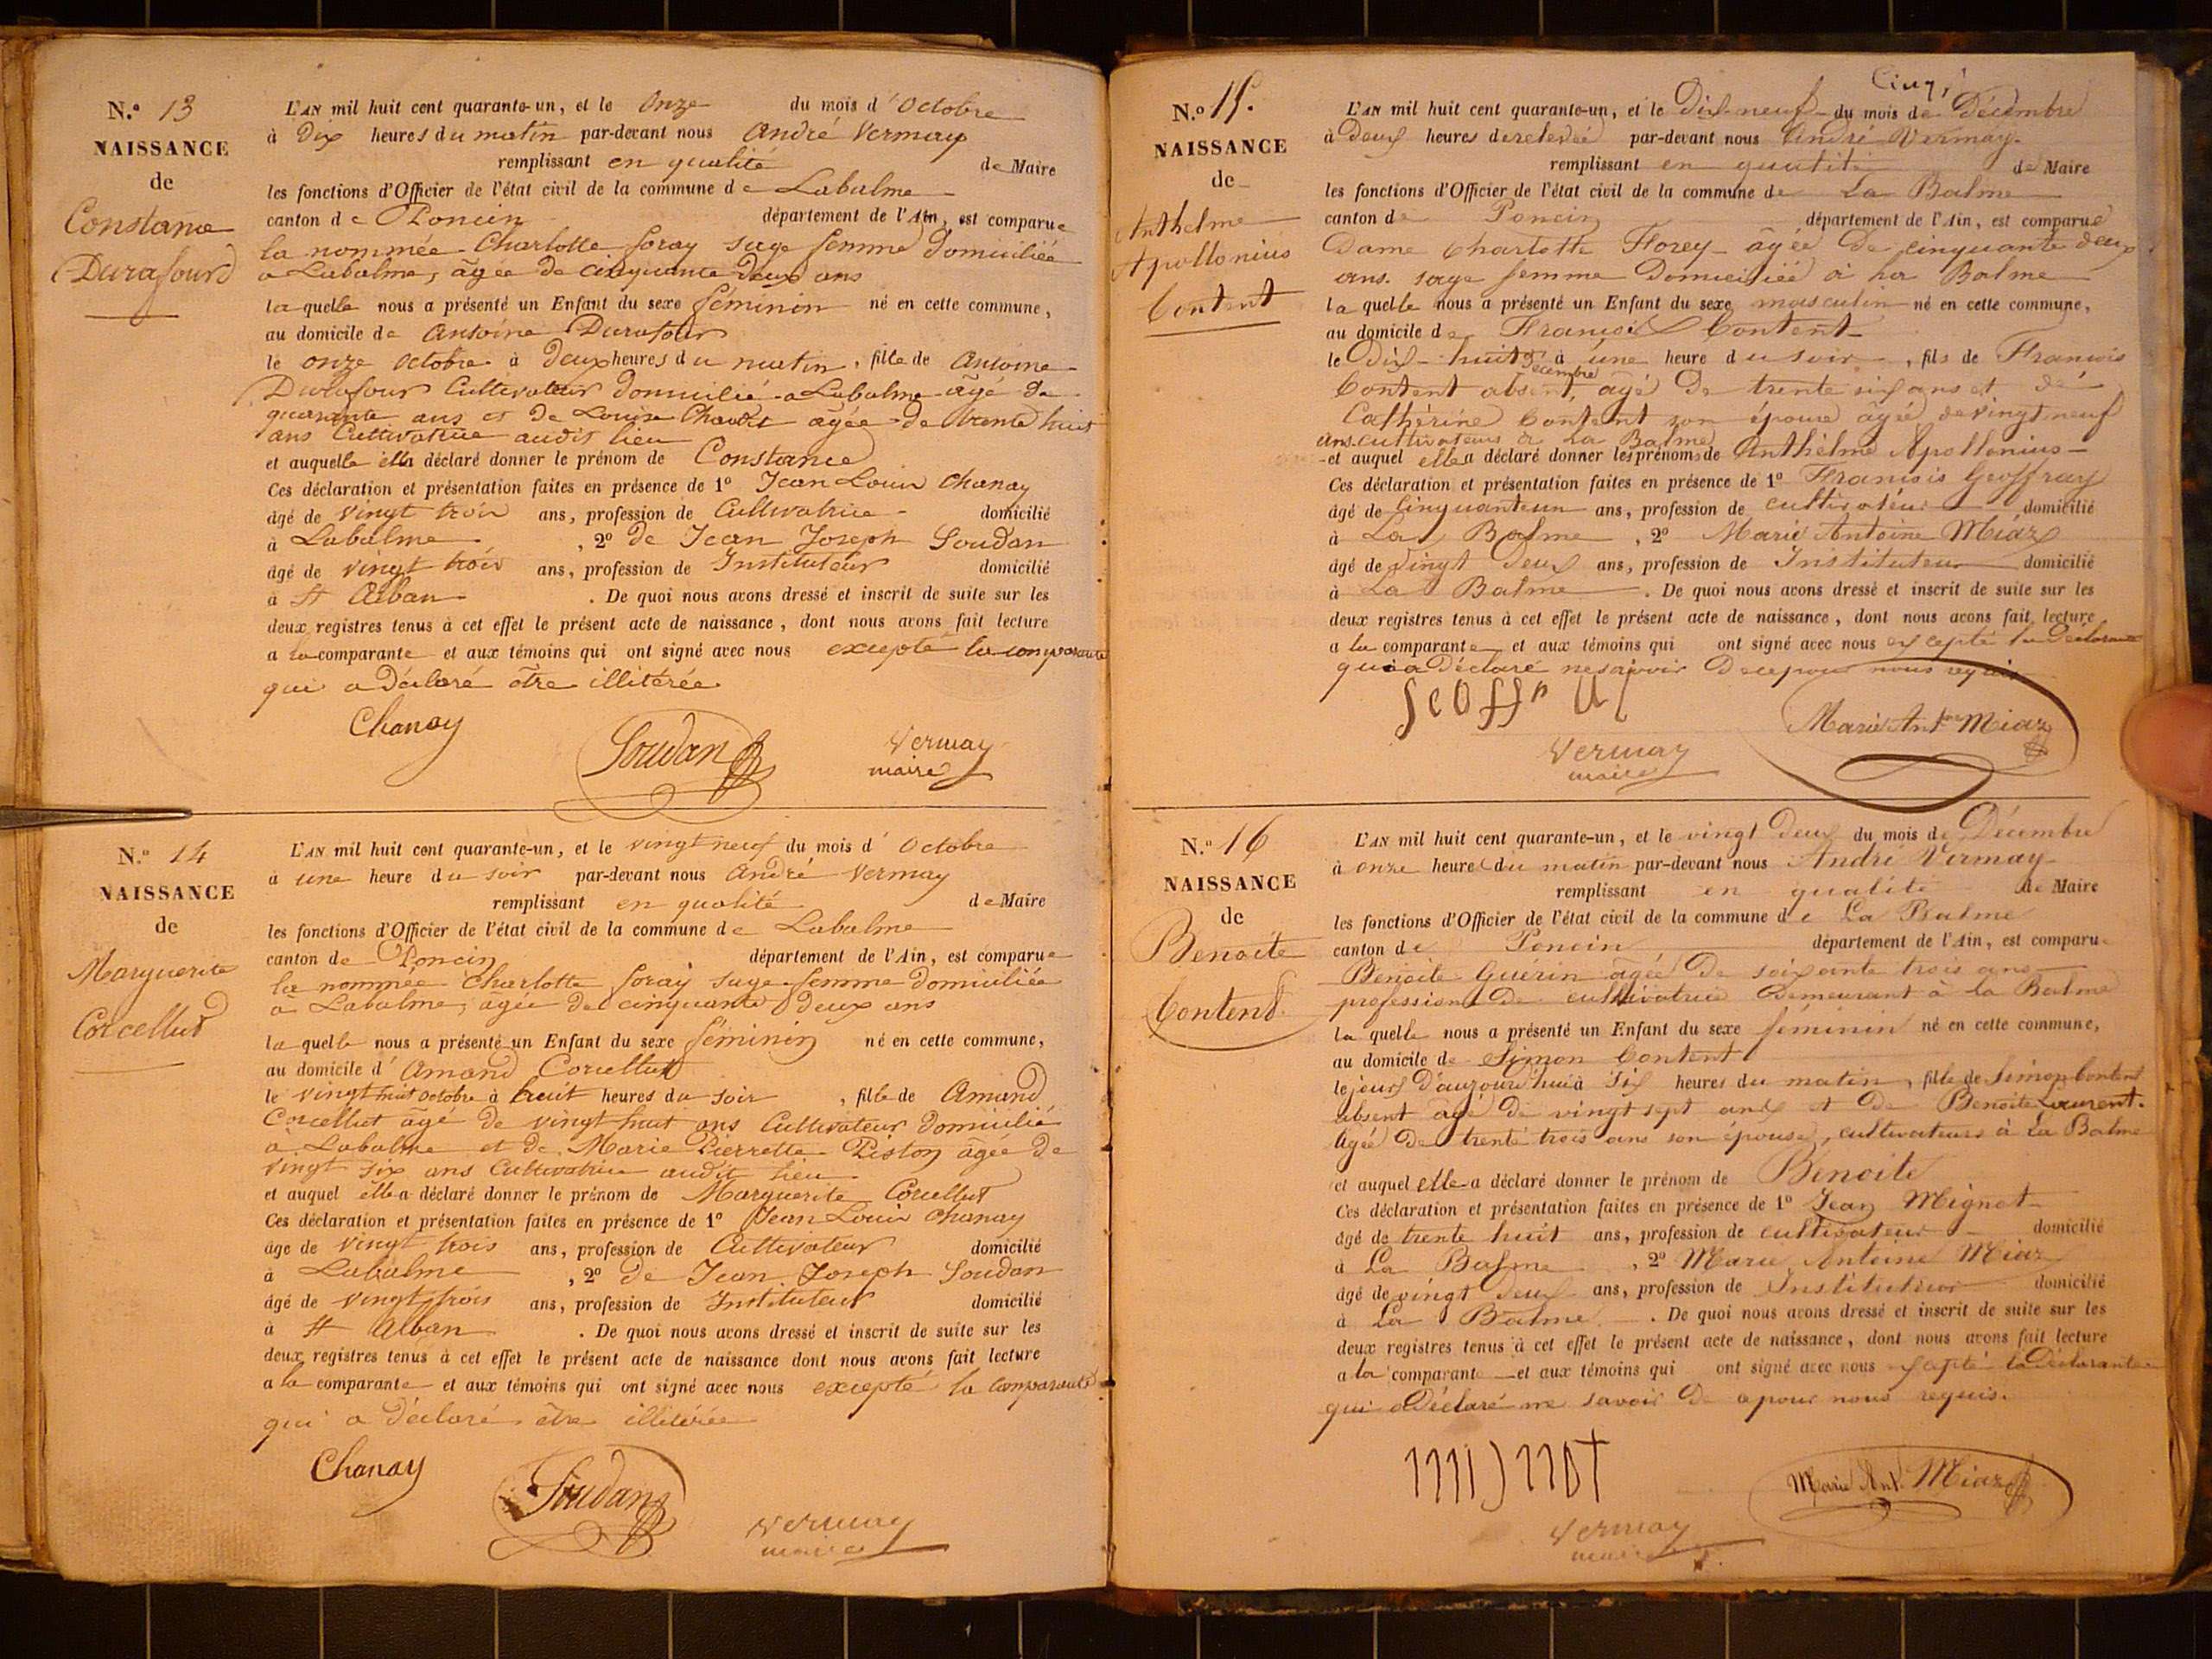 N.º 13
NAISSANCE
de
Constance
Durafourd
L'AN mil huit cent quarante-un, et le Onze du mois d'Octobre
à Dix heures du matin par-devant nous André Vermay
remplissant en qualité de Maire
les fonctions d'Officier de l'état civil de la commune de Labalme
canton de Poncin département de l'Ain, est comparue
la nommée Charlotte foray sage femme domiciliée
a Labalme, âgée de cinquante deux ans
laquelle nous a présenté un Enfant du sexe féminin né en cette commune,
au domicile de Antoine Durafour
le onze octobre à deux heures du matin, fille de Antoine
Durafour Cultivateur domicilié a Labalme âgé de
quarante ans et de Louise âgée de trente huit
ans Cultivatrice audit lieu
et auquelle elle a déclaré donner le prénom de Constance
Ces déclaration et présentation faites en présence de 1º Jean Louis Chanay
âgé de vingt trois ans, profession de Cultivatrice domicilié
à Labalme, 2º de Jean Joseph Soudan
âgé de vingt trois ans, profession de Instituteur domicilié
à St Alban. De quoi nous avons dressé et inscrit de suite sur les
deux registres tenus à cet effet le présent acte de naissance, dont nous avons fait lecture
a la comparante et aux témoins qui ont signé avec nous excepté la comparante
qui a déclaré être illitérée
Chanay Soudan Vermay
maire
N.º 14
NAISSANCE
de
Marguerite
Corcellut
L'AN mil huit cent quarante-un, et le vingt neuf du mois d'Octobre
à une heure du soir par-devant nous André Vermay
remplissant en qualité de Maire
les fonctions d'Officier de l'état civil de la commune de Labalme
canton de Poncin département de l'Ain, est comparue
la nommée Charlotte foray sage femme domiciliée
à Labalme, âgée de cinquante deux ans
laquelle nous a présenté un Enfant du sexe féminin né en cette commune,
au domicile d'Amand Corcellut
le vingt huit octobre à huit heures du soir, fille de Amand
Corcellut âgé de vingt huit ans Cultivateur domicilié
à Labalme et de Marie Pierrette Piston âgée de
vingt six ans Cultivatrice audit lieu
et auquel elle a déclaré donner le prénom de Marguerite Corcellut
Ces déclaration et présentation faites en présence de 1º Jean Louis Chanay
âgé de vingt trois ans, profession de Cultivateur domicilié
à Labalme, 2º de Jean Joseph Soudan
âgé de vingt trois ans, profession de Instituteur domicilié
à St Alban. De quoi nous avons dressé et inscrit de suite sur les
deux registres tenus à cet effet le présent acte de naissance dont nous avons fait lecture
a la comparante et aux témoins qui ont signé avec nous excepté la comparante
qui a déclaré être illitérée
Chanay Soudan Vermay
maire
Cinq
N.º 15.
NAISSANCE
de
Anthelme
Apollonius
Content
L'AN mil huit cent quarante-un, et le Dix-neuf du mois de Décembre
à deux heures de relevée par-devant nous André Vermay.
remplissant en quatité de Maire
les fonctions d'Officier de l'état civil de la commune de La Balme
canton de Poncin département de l'Ain, est comparue
Dame Charlotte Florey âgée de cinquante deux
ans. sage femme Domiciliée à La Balme
laquelle nous a présenté un Enfant du sexe masculin né en cette commune,
au domicile de François Content
le Dix-huit Décembre à une heure du soir, fils de François
Content absent, âgé de trente six ans et de
Cathérine Content son épouse âgée de vingt neuf
ans. cultivateurs à La Balme
et auquel elle a déclaré donner les prénoms de Anthelme Apollonius
Ces déclaration et présentation faites en présence de 1º François Geoffray
âgé de Cinquanteun ans, profession de cultivateur domicilié
à La Balme, 2º Marie Antoine Miaz
âgé de vingt deux ans, profession de Instituteur domicilié
à La Balme. De quoi nous avons dressé et inscrit de suite sur les
deux registres tenus à cet effet le présent acte de naissance, dont nous avons fait lecture
a la comparante et aux témoins qui ont signé avec nous excepté la Déclarante
qui a Déclaré ne savoir De ce pour nous requis
Marie Ant Miaz
Vermay
maire
N.º 16
NAISSANCE
de
Benoite
Contend
L'AN mil huit cent quarante-un, et le vingt Deux du mois de Décembre
à onze heures du matin par-devant nous André Vermay
remplissant en qualité de Maire
les fonctions d'Officier de l'état civil de la commune de La Balme
canton de Poncin département de l'Ain, est comparue
Benoite Guérin âgée de soixante trois ans
profession de cultivatrice demeurant à la Balme
laquelle nous a présenté un Enfant du sexe féminin né en cette commune,
au domicile de Simon Content
le jours d'aujourd'hui à six heures du matin, fille de Simon Content
absent âgé de vingt sept ans et de Benoite Laurent.
âgée de trente trois ans son épouse, cultivateurs à La Balme
et auquel elle a déclaré donner le prénom de Benoite
Ces déclaration et présentation faites en présence de 1º Jean Mignot
âgé de trente huit ans, profession de cultivateur domicilié
à La Balme, 2º Marie Antoine Miaz
âgé de vingt Deux ans, profession de Instituteur domicilié
à La Balme. De quoi nous avons dressé et inscrit de suite sur les
deux registres tenus à cet effet le présent acte de naissance, dont nous avons fait lecture
a la comparante et aux témoins qui ont signé avec nous excepté la Déclarante
qui a Déclaré ne savoir De ce pour nous requis.
Marie Ant. Miaz
Vermay
maire